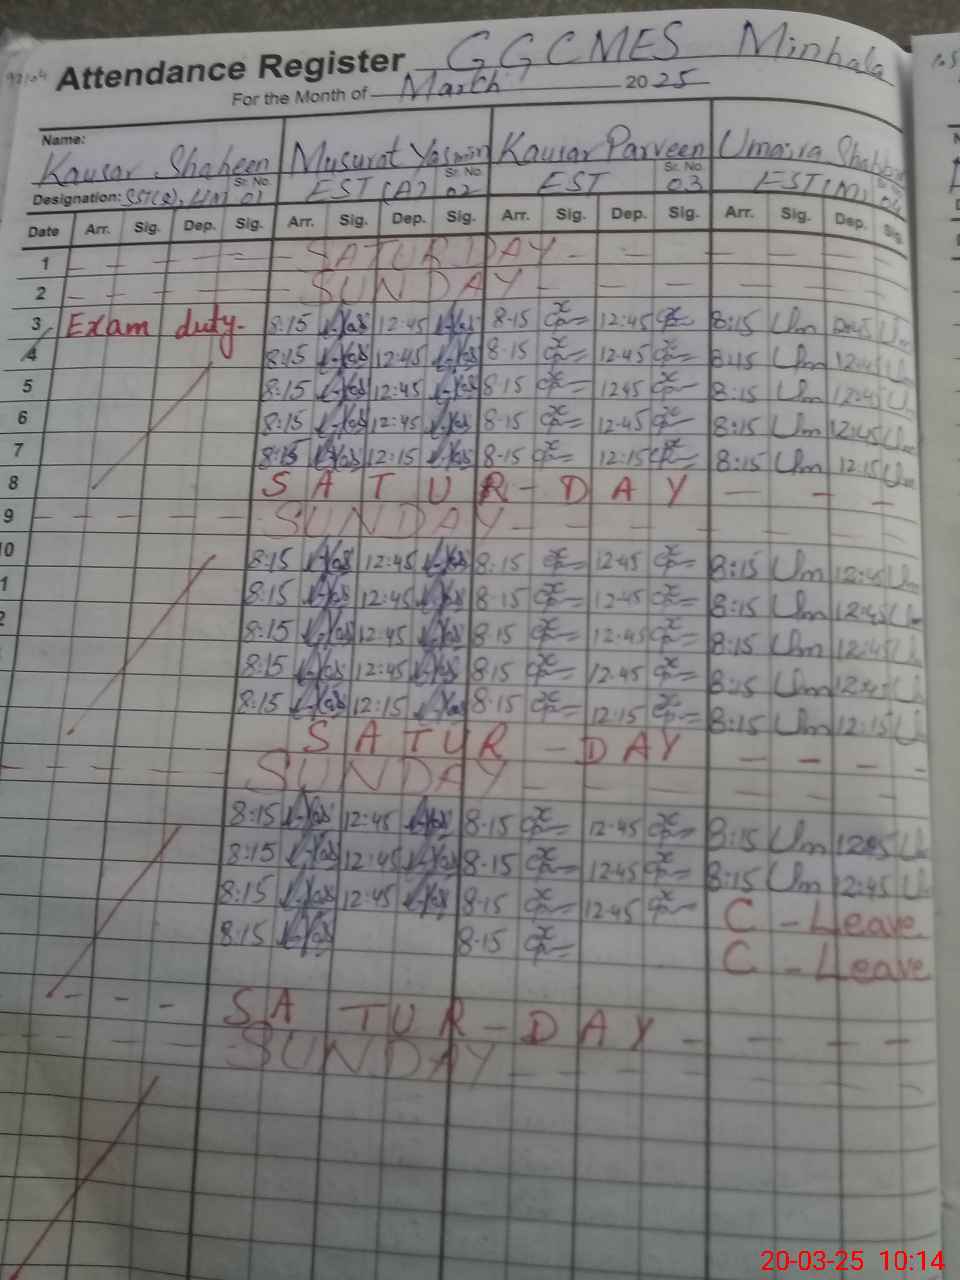 Attendance Register GGCMES Minhala
For the Month of March 2025
Name:
Kausar Shaheen Musurat Yasmin Kausar Parveen Umaira
Sr. No. Sr. No. Sr. No.
Designation: 01 EST (A) 02 EST 03 EST (M) 04
Date Arr. Sig. Dep. Sig. Arr. Sig. Dep. Sig. Arr. Sig. Dep. Sig. Arr. Sig. Dep. Sig.
1 - - - - - SATURDAY - - - - - - -
2 - - - - - SUNDAY - - - - - - -
3 Exam duty. 8:15 12:45 8-15 12:45 8:15 Um 12:45 Um
4 8:15 12:45 8-15 12-45 8:15 Um 12:45 Um
5 8:15 12:45 8-15 1245 8:15 Um 12:45 Um
6 8:15 12:45 8-15 12-45 8:15 Um 12:45 Um
7 8:15 12:15 8-15 12:15 8:15 Um 12:15 Um
8 SATUR-DAY - - -
9 - - - - SUNDAY - - - - - - -
10 8:15 12:45 8:15 12-45 8:15 Um 12:45 Um
1 8:15 12:45 8-15 12-45 8:15 Um 12:45 Um
2 8:15 12:45 8-15 12-45 8:15 Um 12:45 Um
8:15 12:45 8-15 12-45 8:15 Um 12:45 Um
8:15 12:15 8-15 12-15 8:15 Um 12:15 Um
SATUR-DAY - - - -
- - - - SUNDAY - - - - - - -
8:15 12:45 8-15 12-45 8:15 Um
8:15 12:45 8-15 12-45 8:15 Um 12:45 U
8:15 12:45 8-15 12-45 C - Leave
8:15 8-15 C - Leave
- - - SATUR-DAY - - - -
- - - - SUNDAY - - - - - - -
20-03-25 10:14